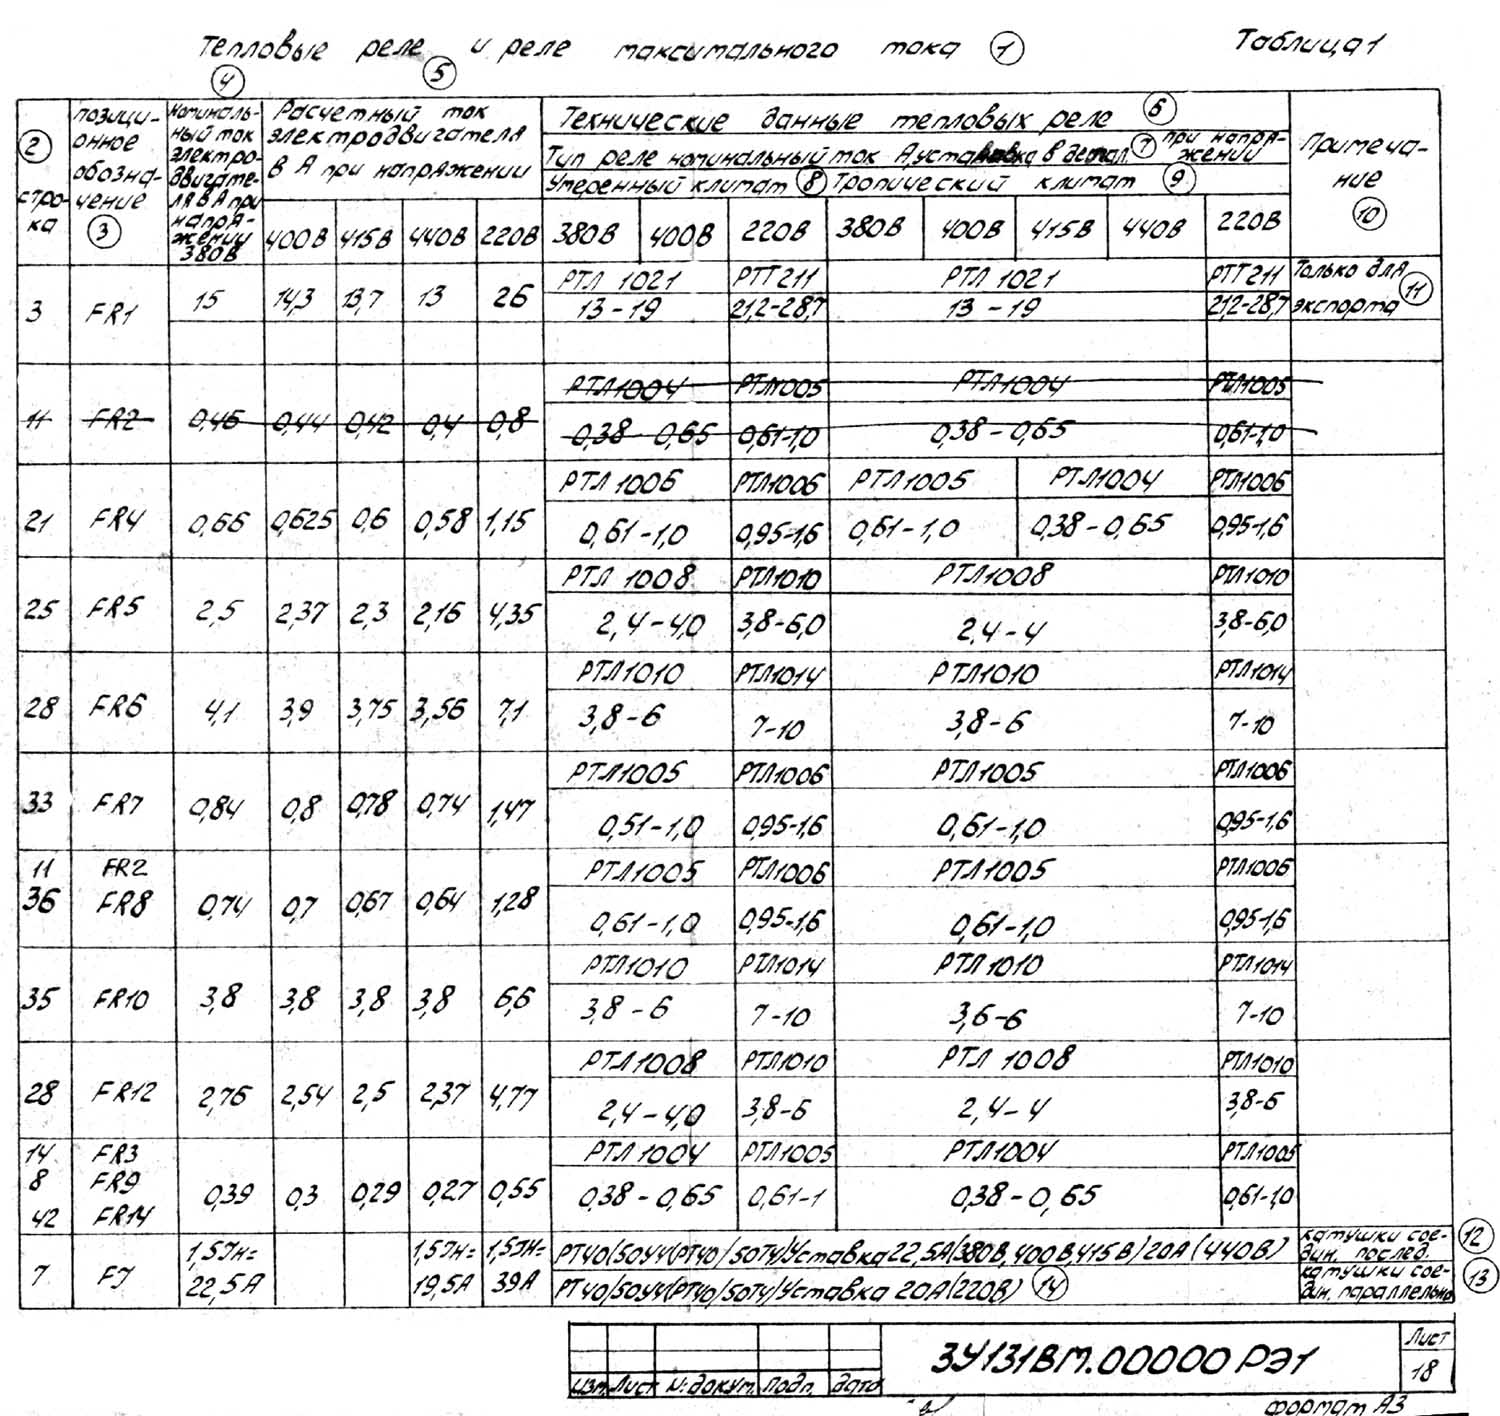 Тепловые реле и реле максимального тока ①
Таблица 1
② строка
позиционное обозначение ③
④ Номинальный ток электродвигателя в А при напряжении 380В
⑤ Расчетный ток электродвигателя в А при напряжении
400В 415В 440В 220В
Технические данные тепловых реле ⑥
Тип реле номинальный ток А уставка в детал. ⑦ при напряжении
Умеренный климат ⑧ Тропический климат ⑨
380В 400В 220В 380В 400В 415В 440В 220В
Примечание ⑩
РТЛ 1021 РТТ211 РТЛ 1021 РТТ211 Только для ⑪
3 FR1 15 14,3 13,7 13 26 13-19 21,2-28,7 13-19 21,2-28,7 экспорта
РТЛ1004 РТЛ1005 РТЛ1004 РТЛ1005
11 FR2 0,46 0,44 0,42 0,4 0,8 0,38-0,65 0,61-1,0 0,38-0,65 0,61-1,0
РТЛ 1006 РТЛ1006 РТЛ1005 РТЛ1004 РТЛ1006
21 FR4 0,66 0,625 0,6 0,58 1,15 0,61-1,0 0,95-1,6 0,61-1,0 0,38-0,65 0,95-1,6
РТЛ 1008 РТЛ1010 РТЛ1008 РТЛ1010
25 FR5 2,5 2,37 2,3 2,16 4,35 2,4-4,0 3,8-6,0 2,4-4 3,8-6,0
РТЛ1010 РТЛ1014 РТЛ1010 РТЛ1014
28 FR6 4,1 3,9 3,75 3,56 7,1 3,8-6 7-10 3,8-6 7-10
РТЛ1005 РТЛ1006 РТЛ1005 РТЛ1006
33 FR7 0,84 0,8 0,78 0,74 1,47 0,51-1,0 0,95-1,6 0,61-1,0 0,95-1,6
11 FR2 РТЛ1005 РТЛ1006 РТЛ1005 РТЛ1006
36 FR8 0,74 0,7 0,67 0,64 1,28 0,61-1,0 0,95-1,6 0,61-1,0 0,95-1,6
РТЛ1010 РТЛ1014 РТЛ1010 РТЛ1014
35 FR10 3,8 3,8 3,8 3,8 6,6 3,8-6 7-10 3,6-6 7-10
РТЛ1008 РТЛ1010 РТЛ 1008 РТЛ1010
28 FR12 2,76 2,54 2,5 2,37 4,77 2,4-4,0 3,8-6 2,4-4 3,8-6
14 FR3 РТЛ1004 РТЛ1005 РТЛ1004 РТЛ1005
8 FR9 0,39 0,3 0,29 0,27 0,55 0,38-0,65 0,61-1 0,38-0,65 0,61-1,0
42 FR14
1,5Iн= 1,5Iн= 1,5Iн= РТ40/50У4(РТ40/50Т4)Уставка 22,5А(380В,400В,415В) 20А (440В) катушки соедин. послед. ⑫
7 FJ 22,5А 19,5А 39А РТ40/50У4(РТ40/50Т4)Уставка 20А(220В) ⑭ катушки соедин. параллельно ⑬
ЗУ131ВМ.00000 РЭ1
Лист
18
Изм. Лист №докум. Подп. Дата
Формат А3